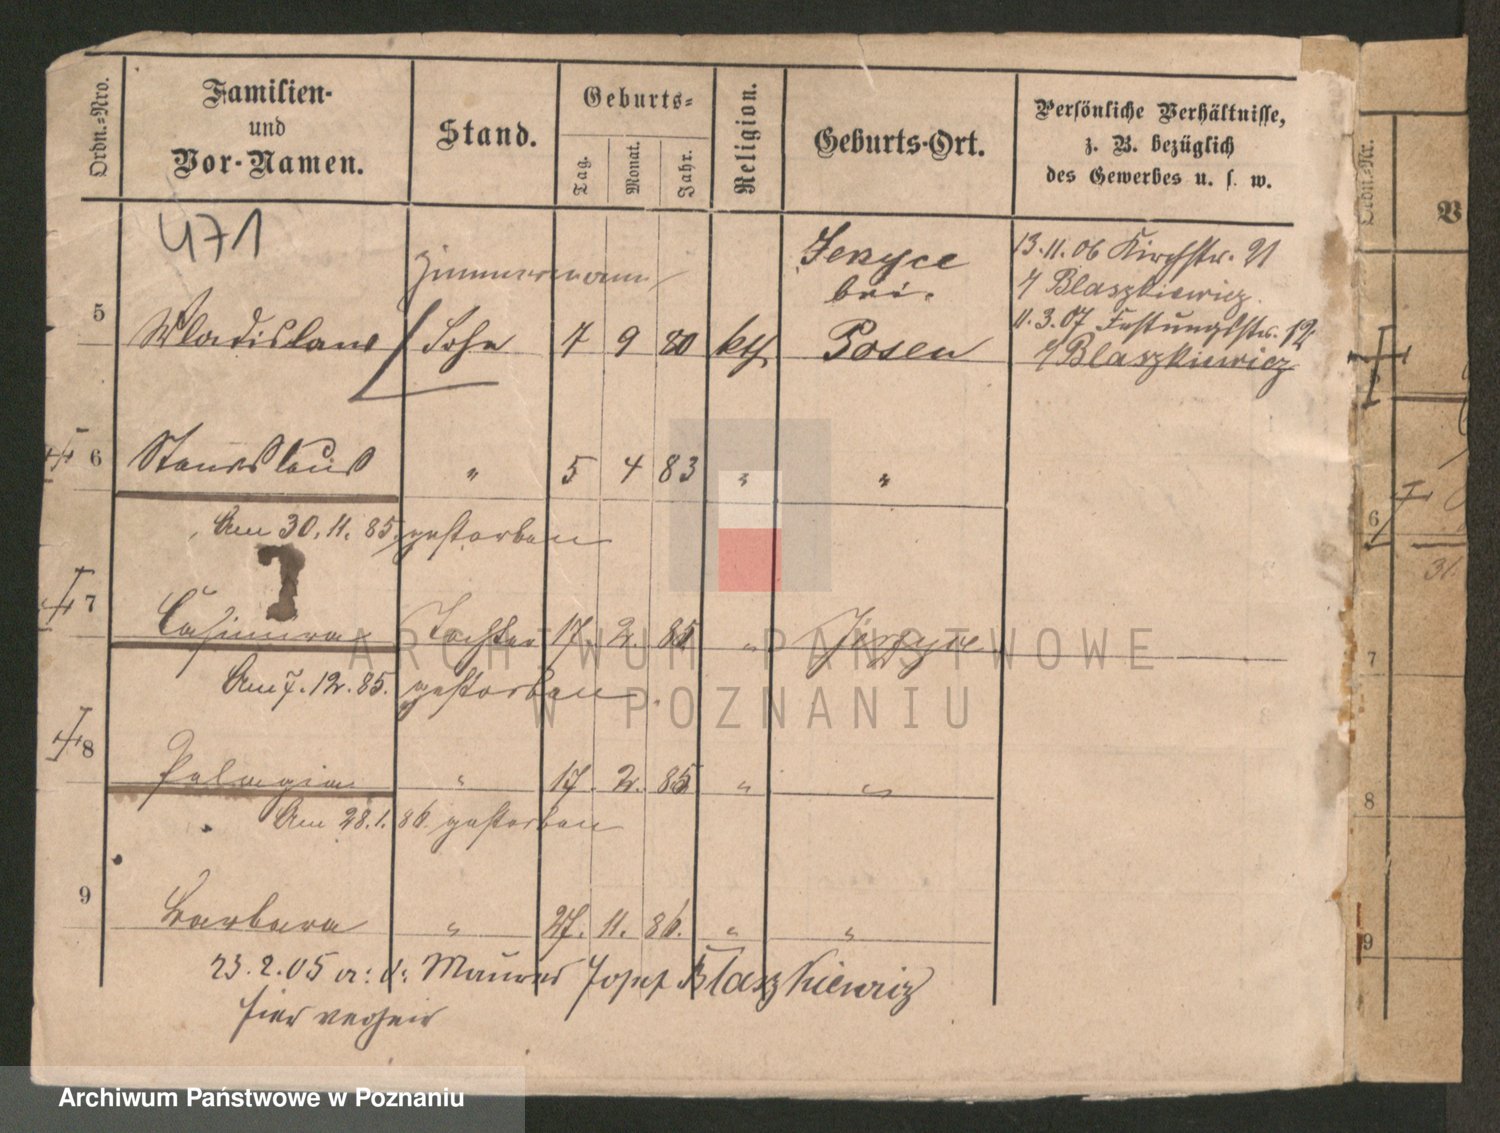 Ordn.=Nro.
Familien-
und
Vor-Namen.
Stand.
Geburts=
Tag.
Monat.
Jahr.
Religion.
Geburts-Ort.
Persönliche Verhältnisse,
z. B. bezüglich
des Gewerbes u. s. w.
471
Zimmermann
Jerzyce
bei
Posen
13.11.06 Kirchstr. 21
Blaszkiewicz
11.3.07 Festungsstr. 12
Blaszkiewicz
5 Wladislaus Sohn 7 9 80 kth.
6 Stanislaus " 5 4 83 " "
Am 30.11.85 gestorben
7 Casimira Tochter 17. 2. 85 " Jerzyce
Am 7.12.85. gestorben
8 Pelagia " 17. 2. 85 " "
Am 28.1.86. gestorben
9 Barbara " 27. 11. 86. " "
23.2.05 Maurer Josef Blaszkiewicz
hier
Ordn.=Nr.
V
6
7
8
9
31.
ARCHIWUM PAŃSTWOWE
W POZNANIU
Archiwum Państwowe w Poznaniu